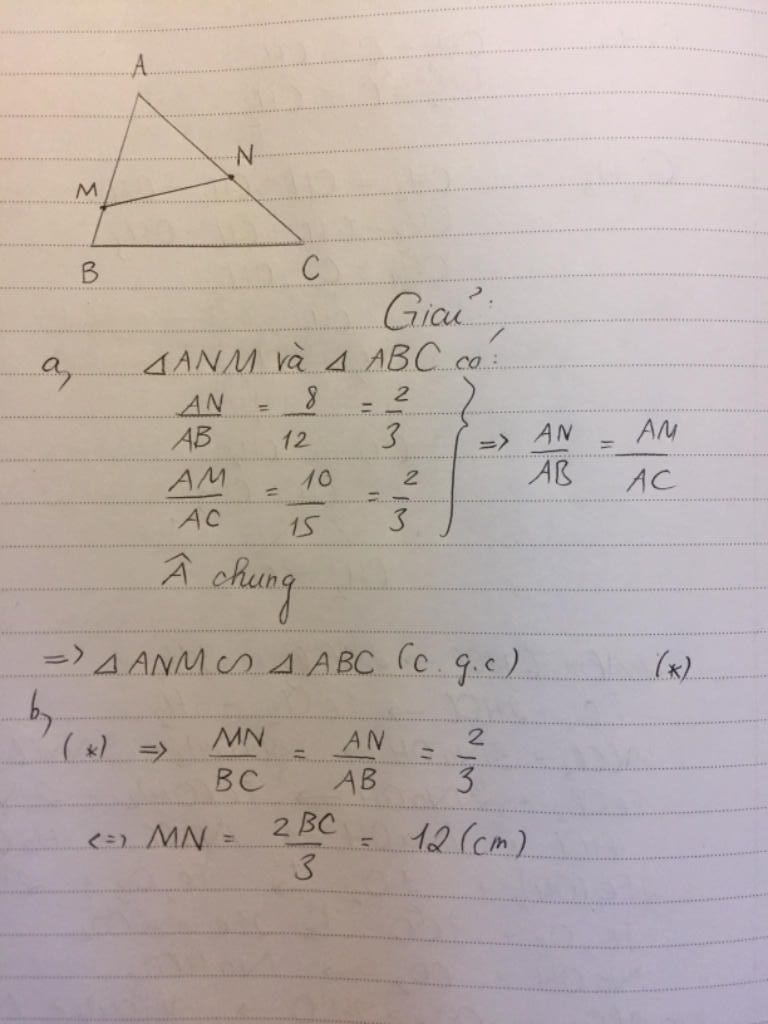 A
N
M
B
C
Giải:
a, ΔANM và Δ ABC có:
AN/AB = 8/12 = 2/3
AM/AC = 10/15 = 2/3
} => AN/AB = AM/AC
Â chung
=> Δ ANM ∽ Δ ABC (c.g.c) (*)
b,
(*) => MN/BC = AN/AB = 2/3
<=> MN = 2BC/3 = 12 (cm)